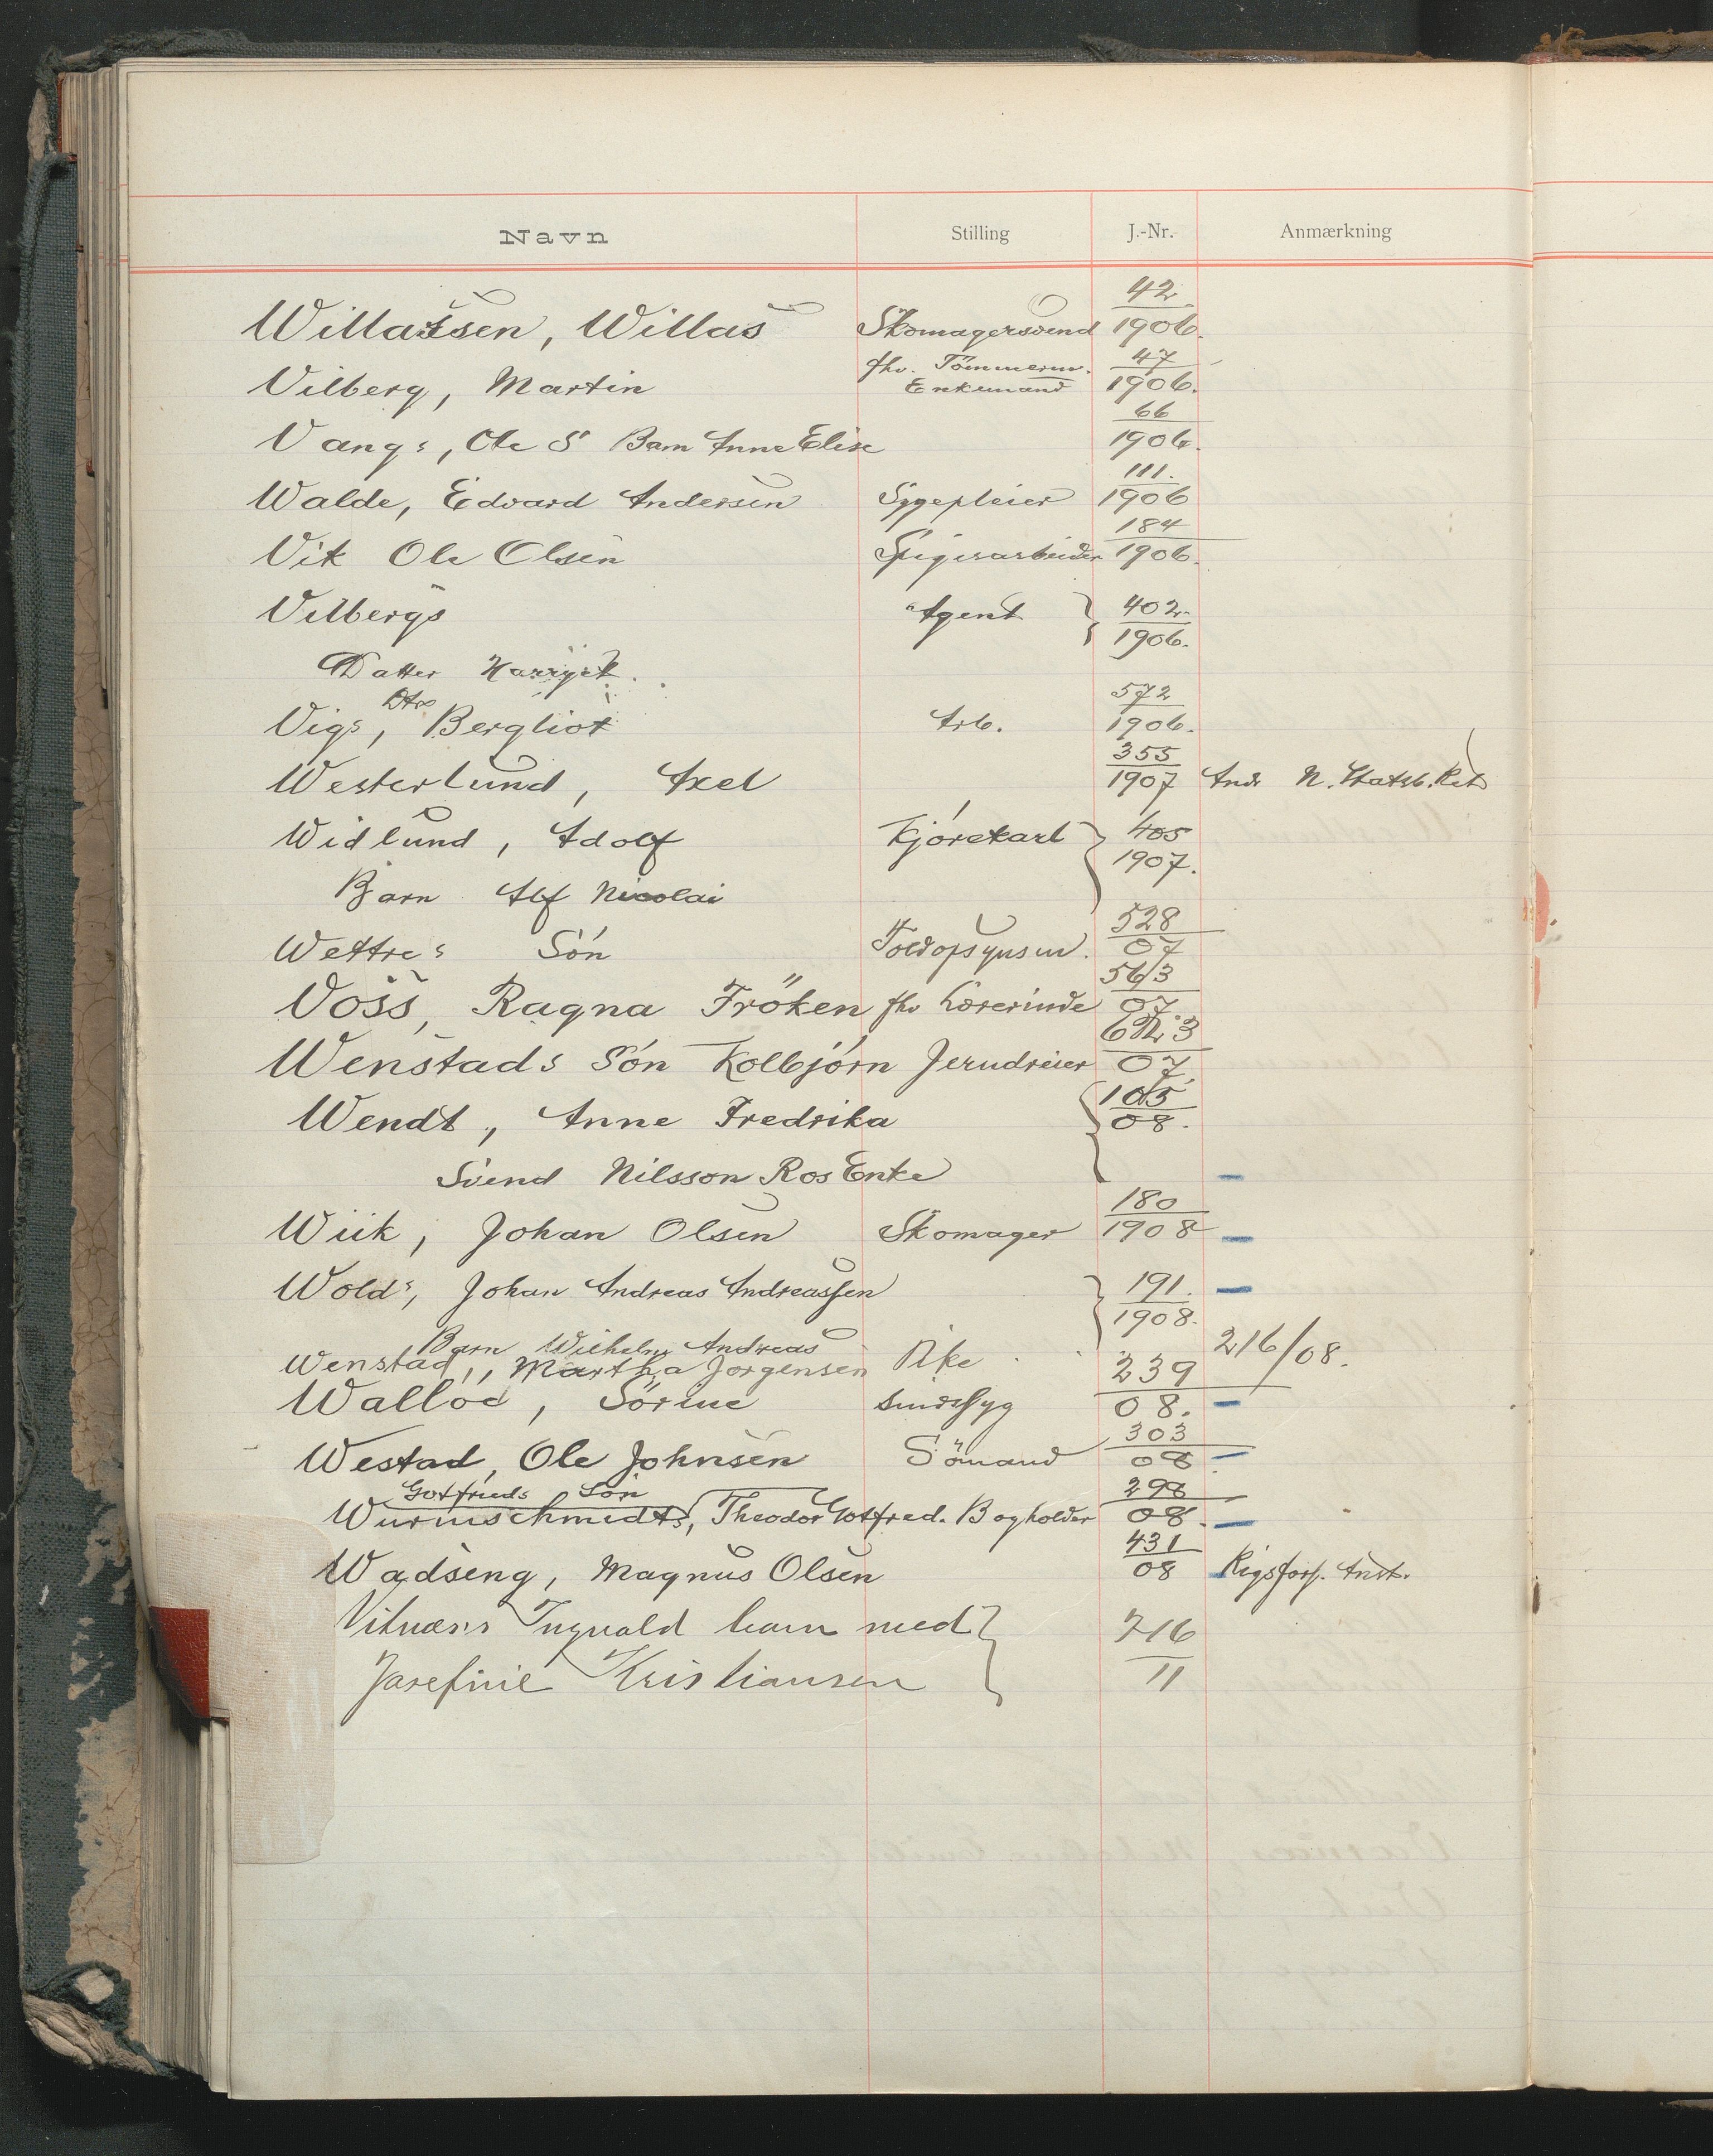 Navn Stilling J.-Nr. Anmærkning
Willassen, Willas Skomagersvend 42/1906.
Vilberg, Martin fhv. Tömmerm. Enkemand 47/1906.
Vangs, Ole S Barn Anne Elise 66/1906.
Walde, Edvard Andersen Sygepleier 111./1906
Vik Ole Olsen Spigerarbeider 184/1906.
Vilbergs Agent 402/1906.
Datter Harryet.
Vigs, Dtr Bergliot Arb. 572/1906.
Westerlund, Axel 355/1907 Andr N. Statsb. Ret
Widlund, Adolf Kjörekarl 405/1907.
Barn Alf Nicolai
Wettres Sön Toldopsynsm. 528/07
Voss, Ragna Fröken fhv Lærerinde 563/07
Wenstads Sön Kolbjörn Jerndreier 07
Wendt, Anne Fredrika 105/08.
Svend Nilsson Ros Enke
Wiik, Johan Olsen Skomager 180/1908
Wolds, Johan Andreas Andreassen 191./1908.
Barn Wilhelm Andreas
Wenstad, Martha Jörgensen Pike 216/08.
Walloe, Sörine sindssyg 239/08.
Westad, Ole Johnsen Sömand 303/08
Gotfrieds Sön
Wurmschmidts, Theodor Gotfred. Bogholder 298/08.
Wadseng, Magnus Olsen 431/08 Rigsfors. Anst.
Vitnæs's Ingvald barn med
Josefine Kristiansen 716/11